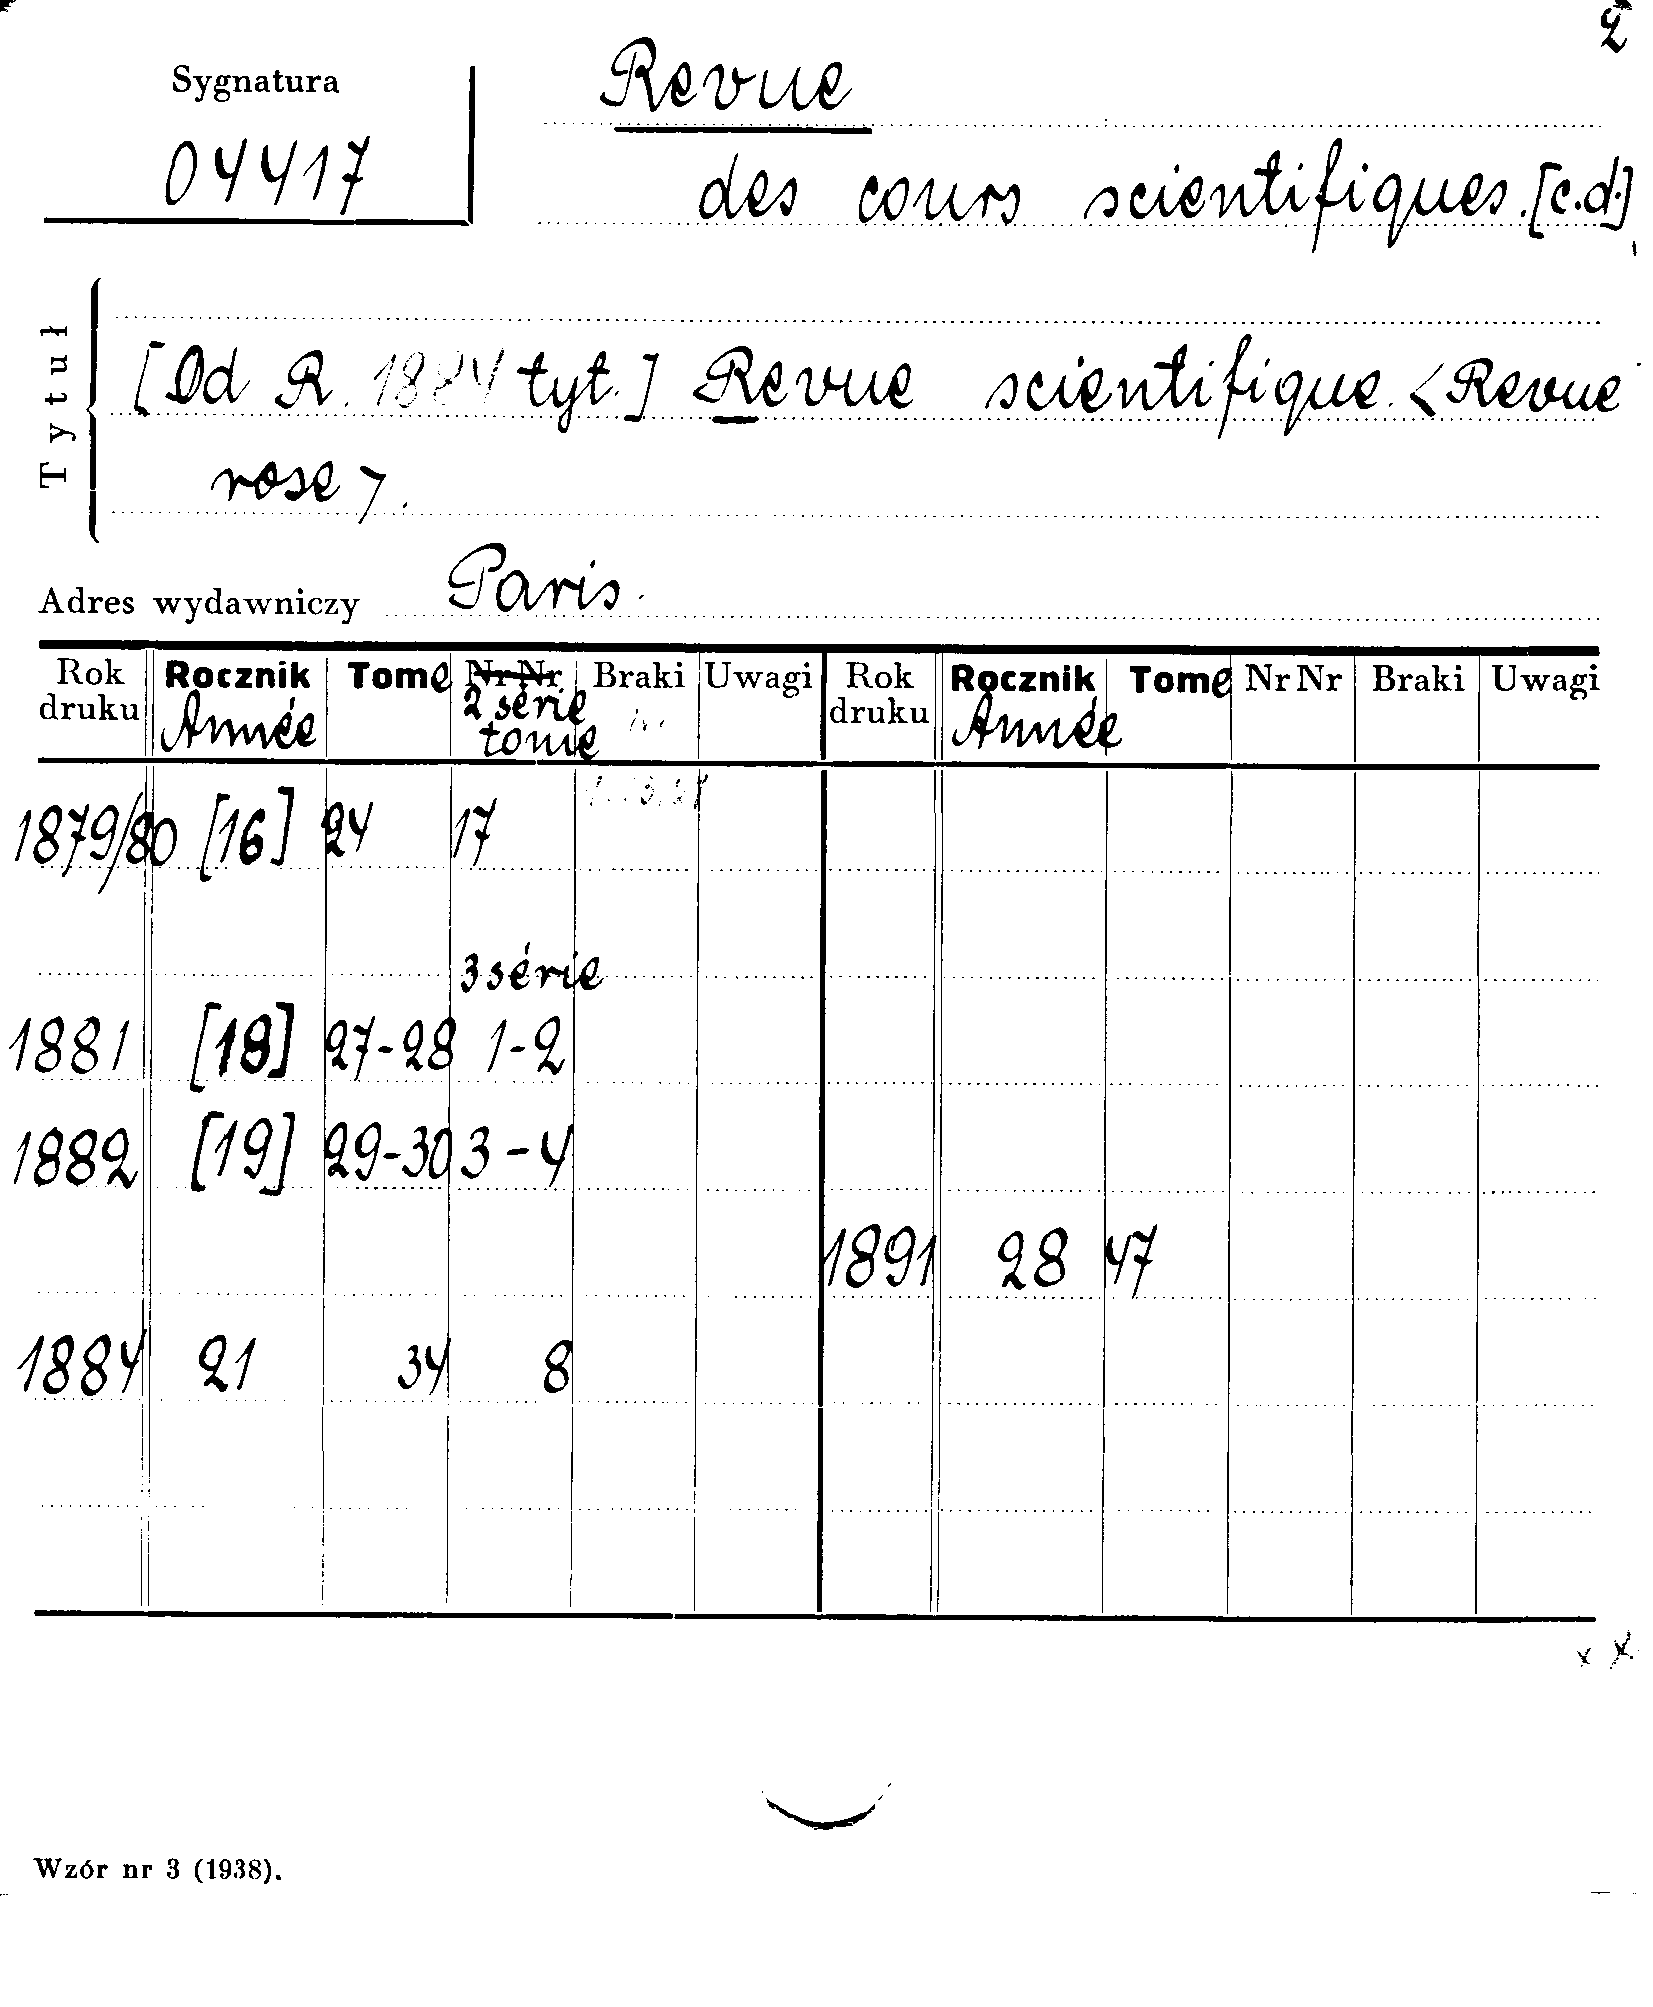 2
Sygnatura
04417
Revue
des cours scientifiques. [c.d.]
Tytuł
[Od R. 1884 tyt.] Revue scientifique. <Revue
rose>.
Adres wydawniczy Paris.
Rok druku Rocznik Année Tome Nr Nr 2 série tome Braki Uwagi Rok druku Rocznik Année Tome Nr Nr Braki Uwagi
1879/80 [16] 24 17
3 série
1881 [18] 27-28 1-2
1882 [19] 29-30 3-4
1891 28 47
1884 21 34 8
x x
Wzór nr 3 (1938).